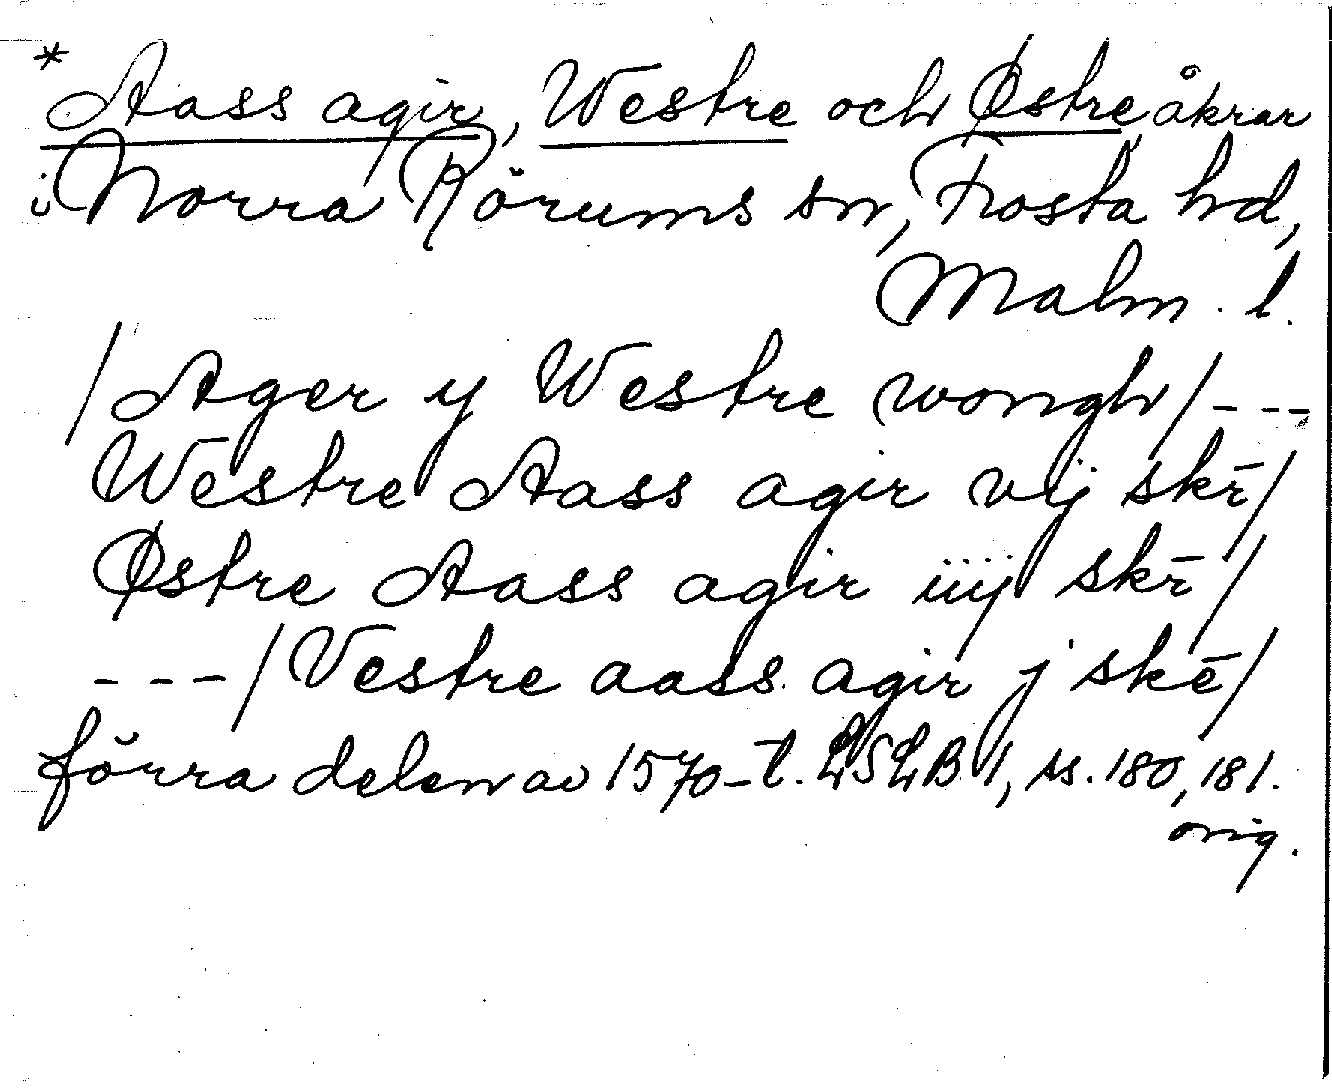 * Aass agir, Westre och Østre, åkrar
i Norra Rörums sn, Frosta hd,
Malm. l.
/Ager y Westre wongh/---
Westre Aass agir vij skr̄/
Østre Aass agir iiij skr̄/
---/Vestre aass agir j skē/
förra delen av 1570-t. LSLB 1, ss. 180, 181.
orig.